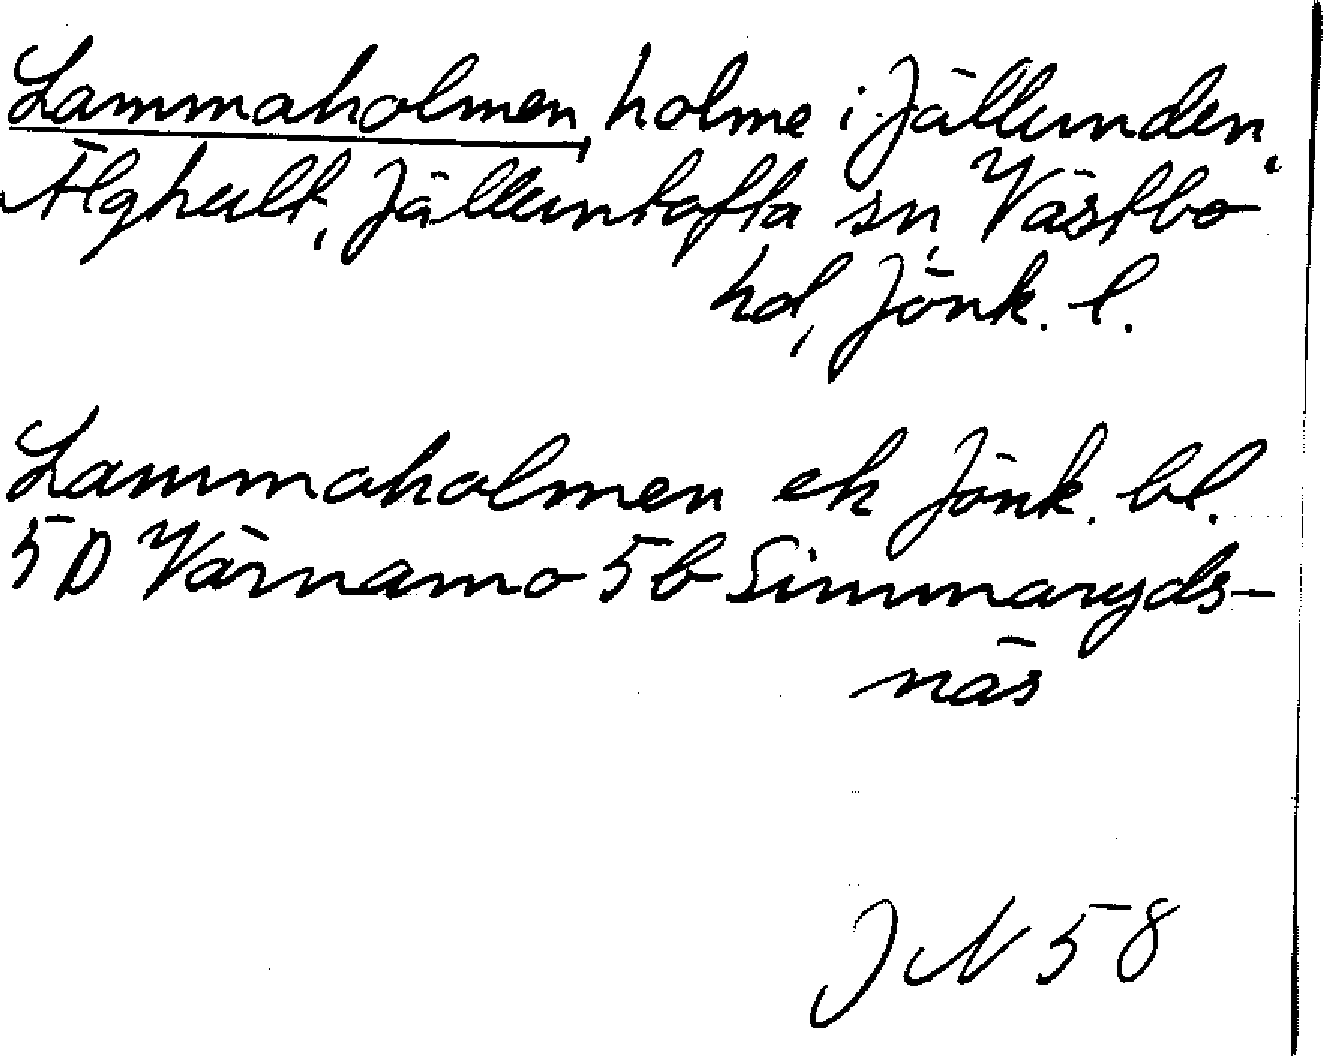 Lammaholmen, holme i Jällunden,
Älghult, Jälluntofta sn, Västbo
hd, Jönk. l.
Lammaholmen ek Jönk. bl.
5D Värnamo 5b Simmaryds-
näs
JN 58